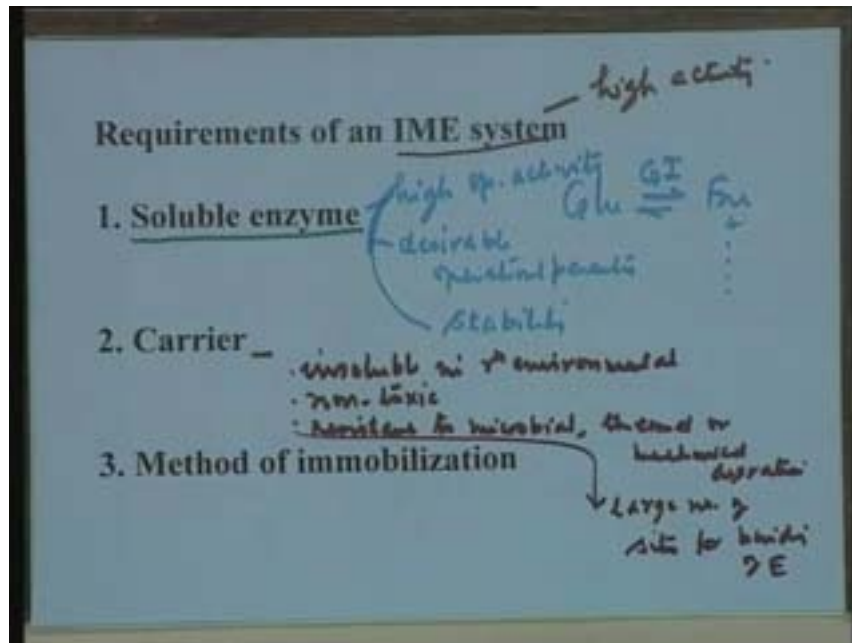 high activity.
Requirements of an IME system
1. Soluble enzyme
high sp. activity
Glu GI ⇌ Fru
+
desirable
operational
stability
2. Carrier -
· insoluble in rⁿ environmental
· non-toxic
· resistant to microbial, thermal or
mechanical
3. Method of immobilization
Large no. of
sites for binding
of E